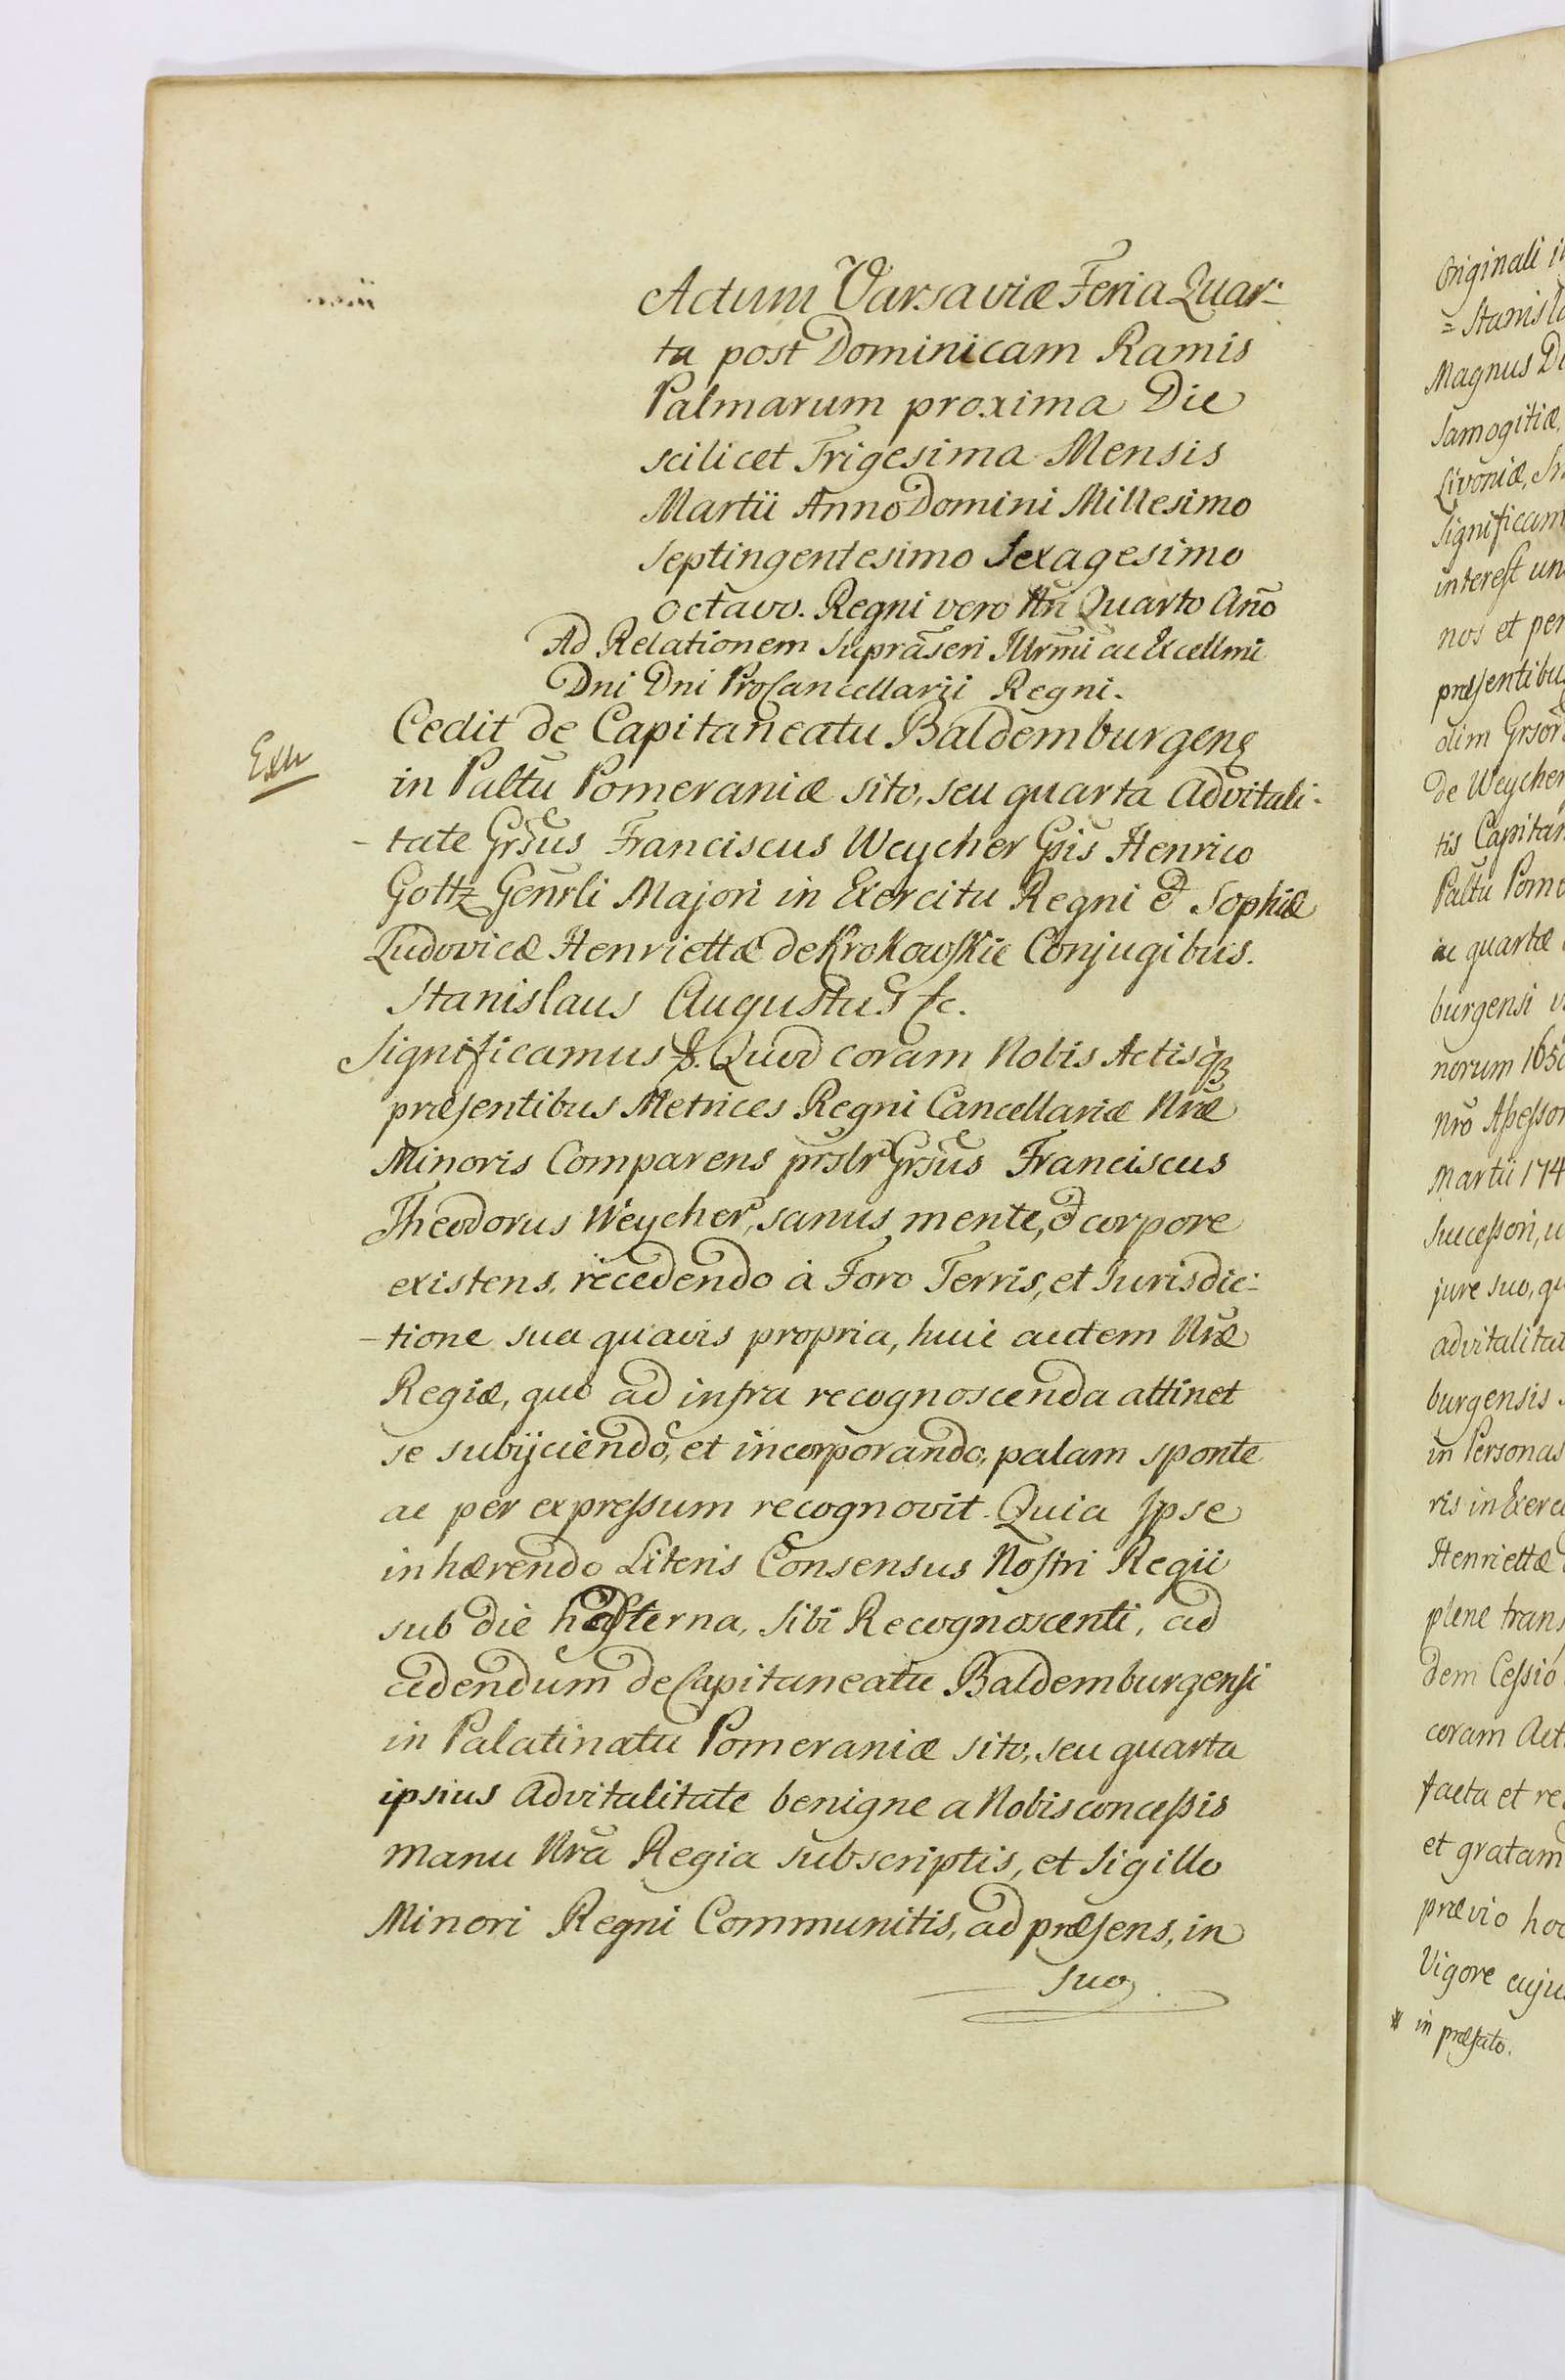 Actum Varsaviæ Feria Quar-
ta post Dominicam Ramis
Palmarum proxima Die
scilicet Trigesima Mensis
Martii Anno Domini Millesimo
Septingentesimo Sexagesimo
octavo. Regni vero Nri Quarto Año
Ad Relationem Suprascri Illrmi ac Excellmi
Dni Dni ProCancellarii Regni.
Cedit de Capitaneatu Baldemburgenę
in Paltu Pomeraniæ sito, seu quarta Advitali-
-tate Grsus Franciscus Weycher Gsis Henrico
Goltz Genrli Majori in Exercitu Regni et Sophiæ
Ludovicæ Henriettæ de Krokowskie Conjugibus.
Stanislaus Augustus &c.
Significamus &. Quod coram Nobis Actisq3
præsentibus Metrices Regni Cancellariæ Nræ
Minoris Comparens prslr Grsus Franciscus
Theodorus Weycher, sanus mente, et corpore
existens, recedendo à Foro Terris, et Jurisdic-
-tione sua quavis propria, huic autem Nræ
Regiæ, quo ad infra recognoscenda attinet
se subijciendo, et incorporando, palam sponte
ac per expressum recognovit. Quia Ipse
inhærendo Literis Consensus Nostri Regii
sub die hesterna, sibi Recognoscenti, ad
cedendum de Capitaneatu Baldemburgensi
in Palatinatu Pomeraniæ sito, seu quarta
ipsius Advitalitate benigne a Nobis concessis
manu Nra Regia subscriptis, et Sigillo
Minori Regni Communitis, ad præsens, in
suo.
Originali
Stanisla
Magnus D
Samogitiæ,
Livoniæ,
Significam
interest
nos et per
præsentibu
olim Grsor
de Weycher
tis Capitan
Paltu Pome
ac quartæ
burgensi
norum 165
Nro Assessor
Martii 174
Successori, u
jure suo, qu
advitalitat
burgensis
in Personas
ris in Exerc
Henriettæ
plene trans
dem Cessio
coram Act
facta et re
et gratam
prævio hoc
Vigore cuju
* in præfato.